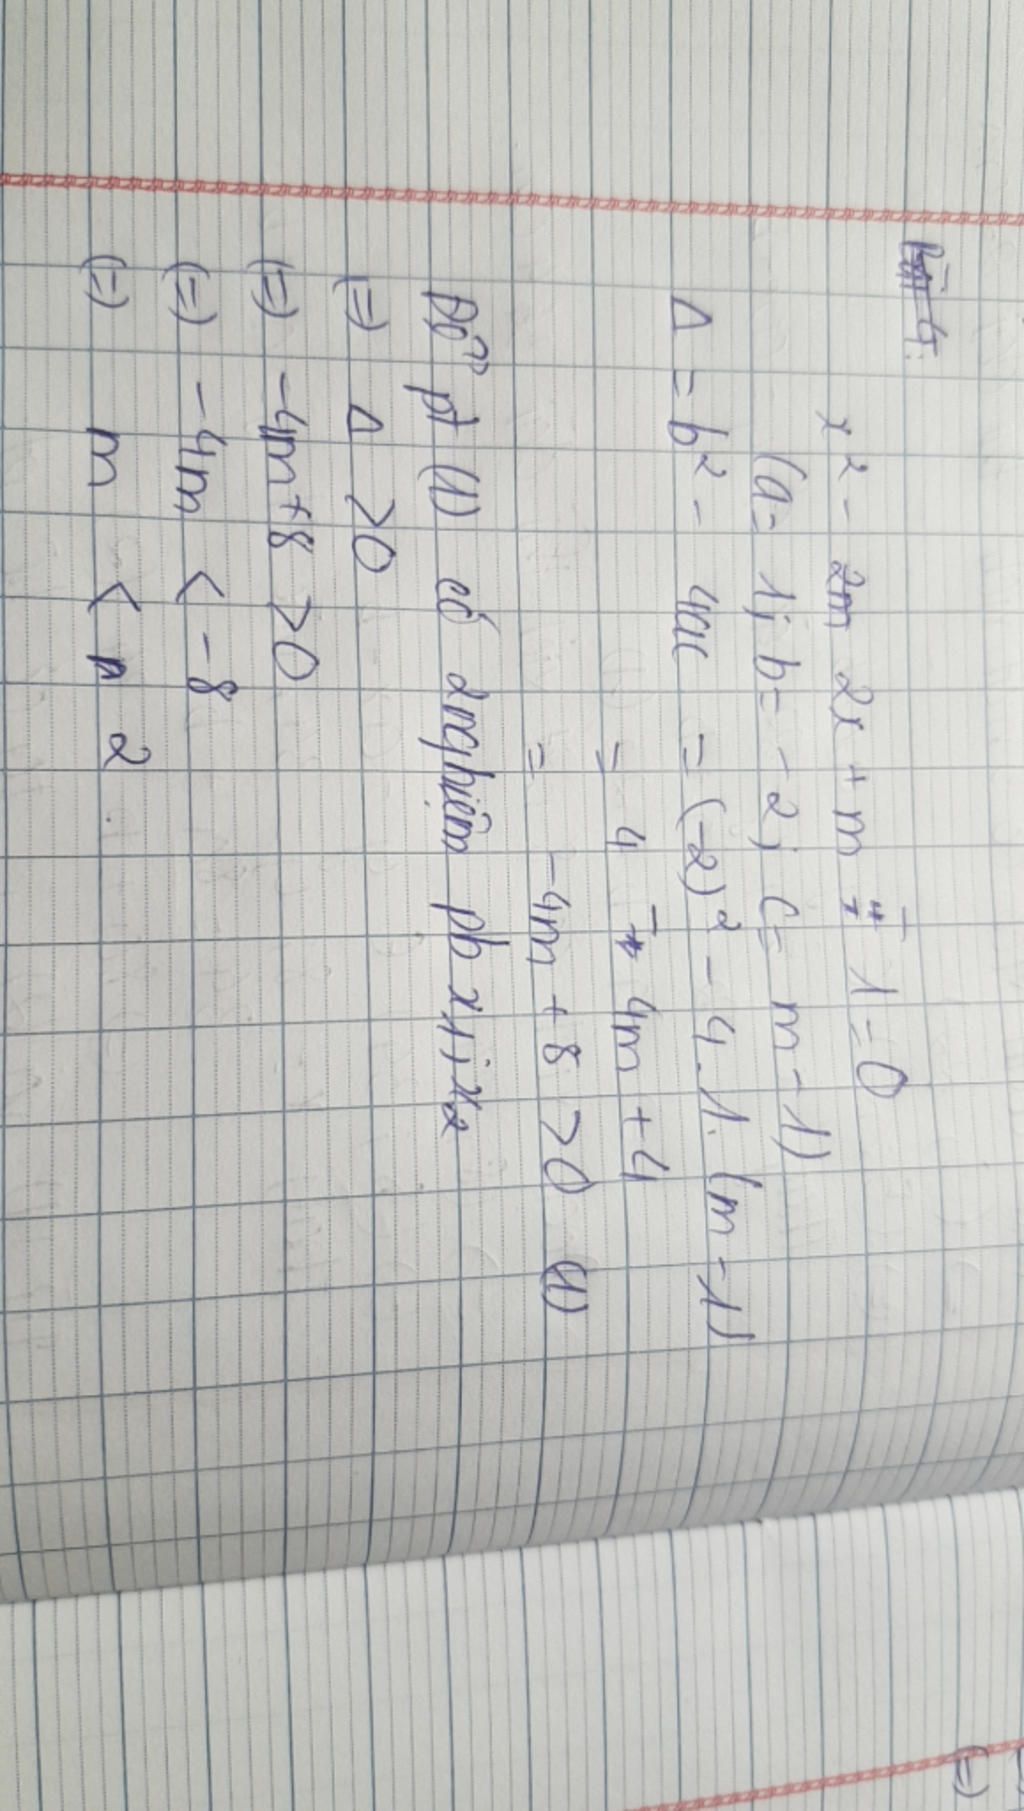 Bài 4:
x² - 2m 2x + m - 1 = 0
(a = 1; b = -2; c = m - 1)
Δ = b² - 4ac = (-2)² - 4.1.(m - 1)
= 4 - 4m + 4
= -4m + 8 > 0 (1)
Để pt (1) có 2 nghiệm pb x1; x2
(=) Δ > 0
(=) -4m + 8 > 0
(=) -4m < -8
(=) m < 2
(=)